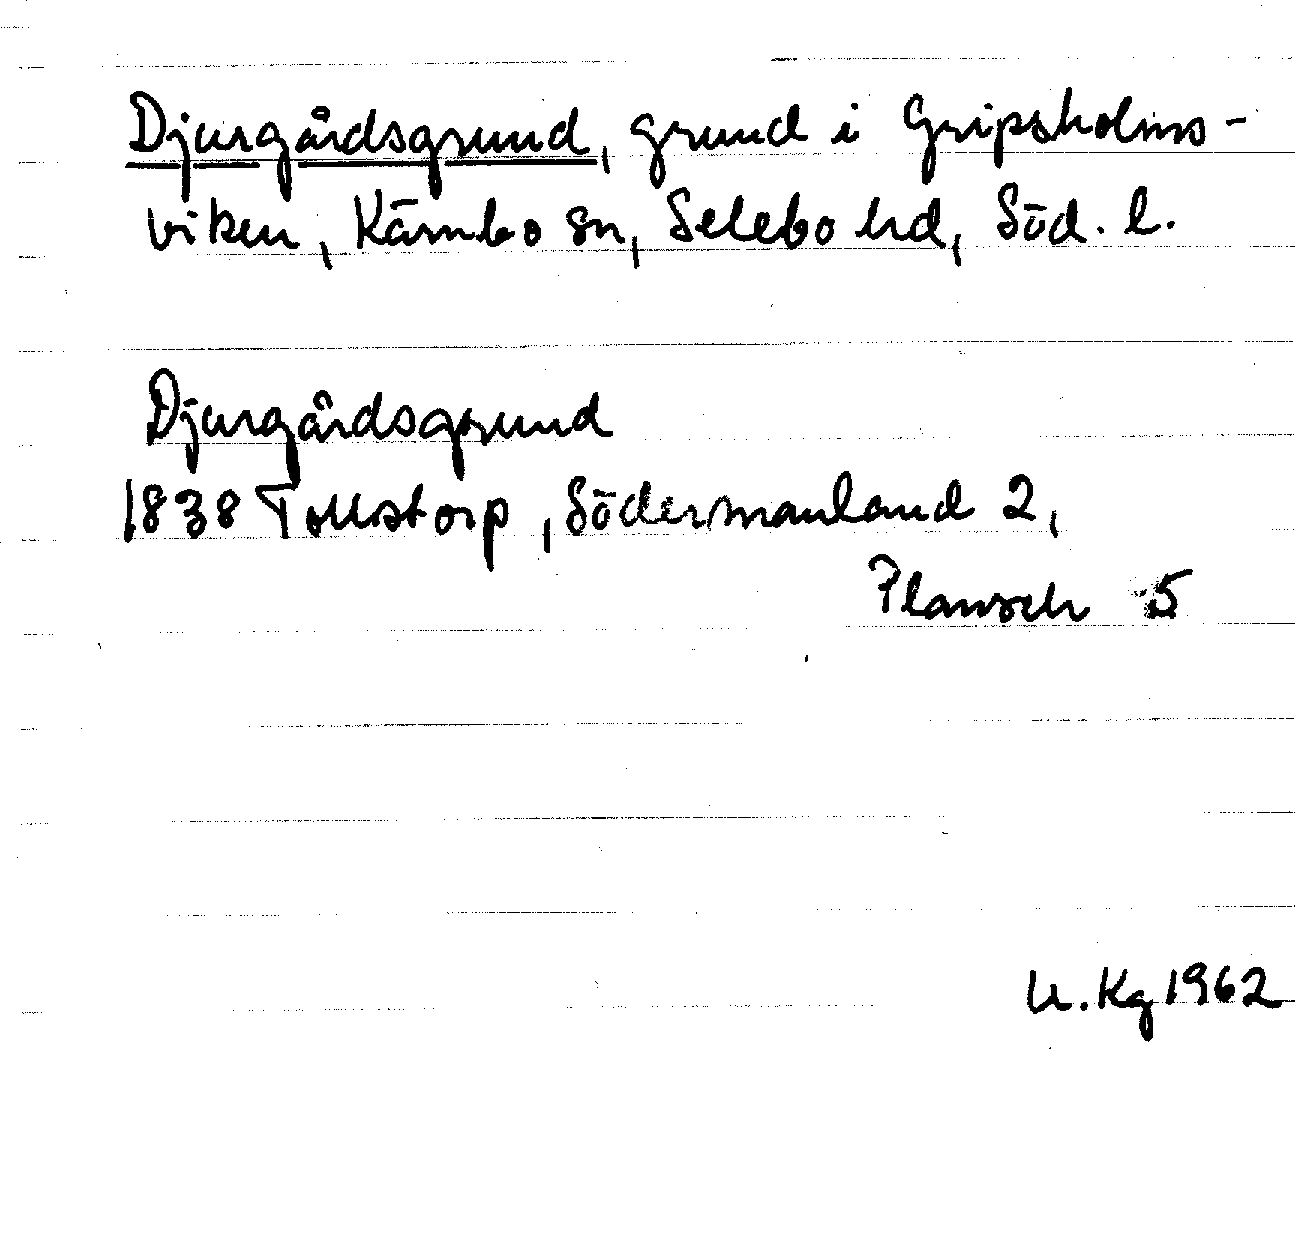 Djurgårdsgrund, grund i Gripsholms-
viken, Kärnbo sn, Selebo hd, Söd. l.
Djurgårdsgrund
1838 Tollstorp, Södermanland 2,
Plansch 5
U. Kg 1962